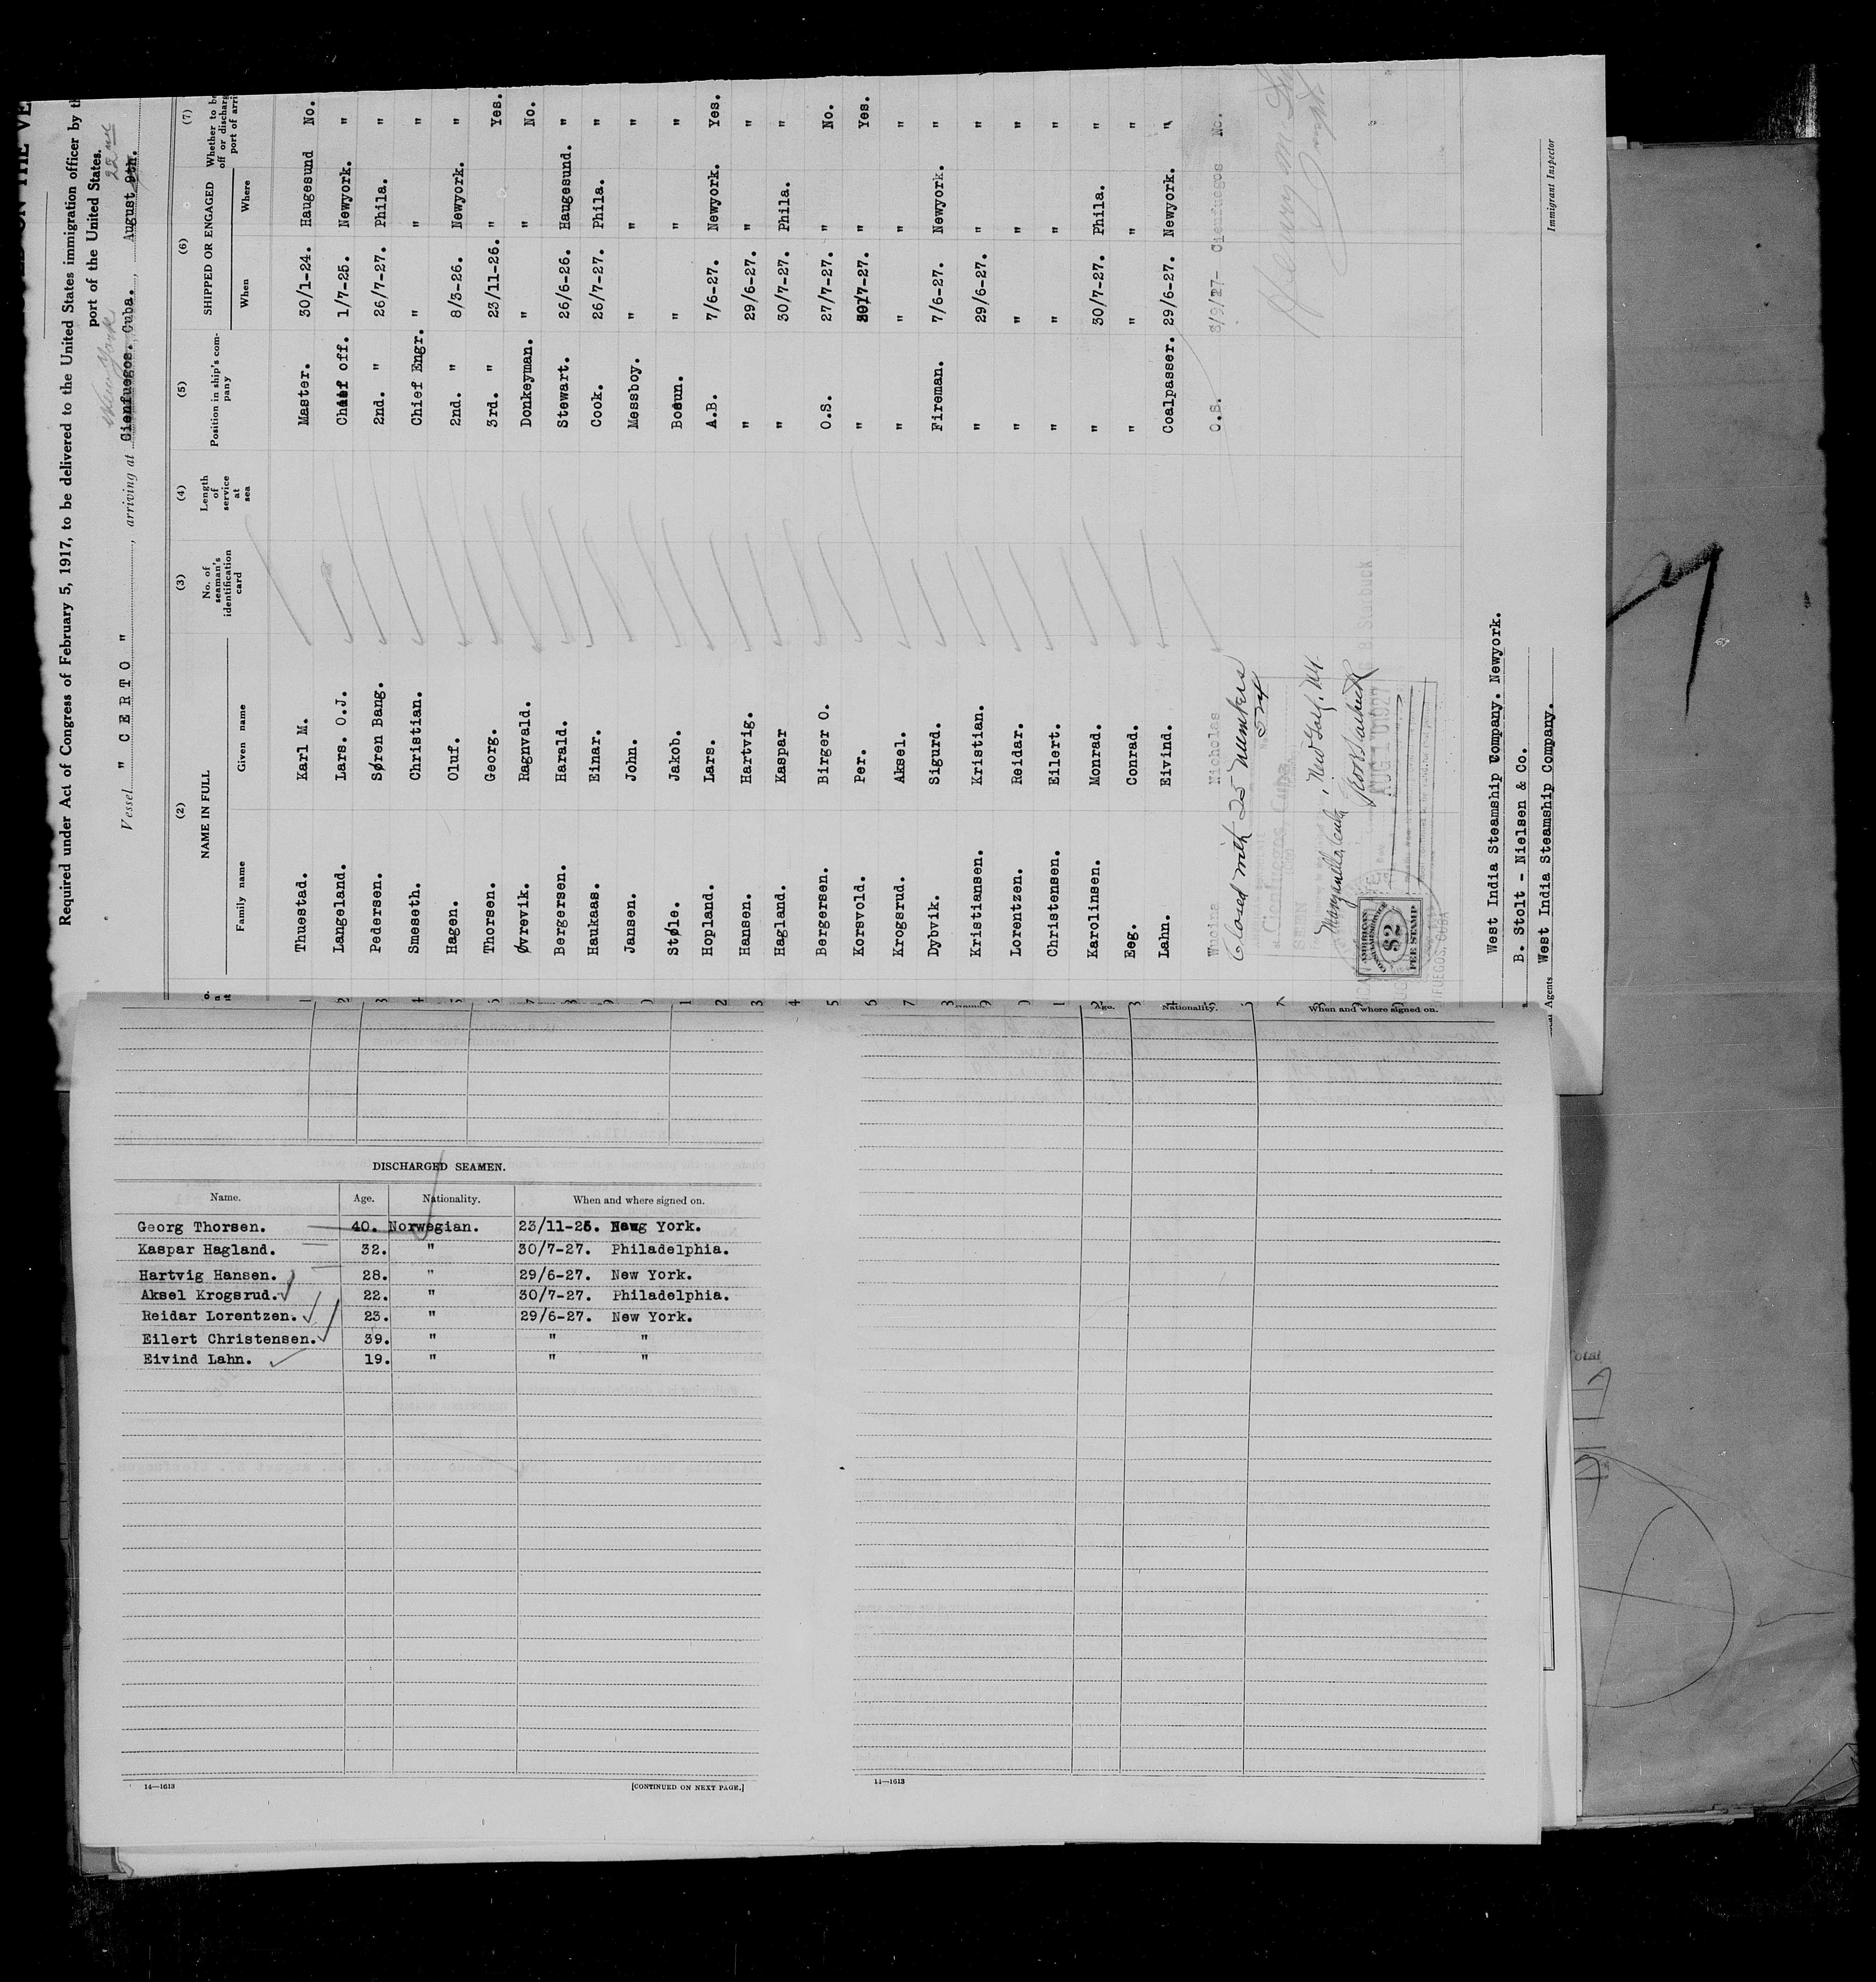 Required under Act of Congress of February 5, 1917, to be delivered to the United States immigration officer by th
port of the United States.
New York 22nd
Vessel " CERTO " , arriving at Cienfuegos. Cuba. , August 9th.
(2) (3) (4) (5) (6) (7)
NAME IN FULL No. of seaman's identification card Length of service at sea Position in ship's company SHIPPED OR ENGAGED Whether to be off or discharg port of arri
Family name Given name When Where
1 Thuestad. Karl M. Master. 30/1-24. Haugesund No.
2 Langeland. Lars. O.J. Chief off. 1/7-25. Newyork. "
3 Pedersen. Søren Bang. 2nd. " 26/7-27. Phila. "
4 Smeseth. Christian. Chief Engr. " " "
5 Hagen. Oluf. 2nd. " 8/3-26. Newyork. "
6 Thorsen. Georg. 3rd. " 23/11-26. " Yes.
7 Øvrevik. Ragnvald. Donkeyman. " " No.
8 Bergersen. Harald. Stewart. 26/6-26. Haugesund. "
9 Haukaas. Einar. Cook. 26/7-27. Phila. "
0 Jansen. John. Messboy. " " "
1 Støle. Jakob. Bosun. " " "
2 Hopland. Lars. A.B. 7/6-27. Newyork. Yes.
3 Hansen. Hartvig. " 29/6-27. " "
4 Hagland. Kaspar " 30/7-27. Phila. "
5 Bergersen. Birger O. O.S. 27/7-27. " No.
6 Korsvold. Per. " 30/7-27. " Yes.
7 Krogsrud. Aksel. " " " "
8 Dybvik. Sigurd. Fireman. 7/6-27. Newyork. "
9 Kristiansen. Kristian. " 29/6-27. " "
0 Lorentzen. Reidar. " " " "
1 Christensen. Eilert. " " " "
2 Karolinsen. Monrad. " 30/7-27. Phila. "
3 Eeg. Conrad. " " " "
4 Lahn. Eivind. Coalpasser. 29/6-27. Newyork. "
5 Nicholas O.S. 8/9/27- Cienfuegos No.
Closed with 25 members
524
Cienfuegos, Cuba
Manzanillo, Cuba
AUG 10 1927
AMERICAN CONSULAR SERVICE
$2
FEE STAMP
West India Steamship Company. Newyork.
B. Stolt - Nielsen & Co.
Agents West India Steamship Company.
Immigrant Inspector
DISCHARGED SEAMEN.
Name. Age. Nationality. When and where signed on.
Georg Thorsen. 40. Norwegian. 23/11-26. New York.
Kaspar Hagland. 32. " 30/7-27. Philadelphia.
Hartvig Hansen. 28. " 29/6-27. New York.
Aksel Krogsrud. 22. " 30/7-27. Philadelphia.
Reidar Lorentzen. 23. " 29/6-27. New York.
Eilert Christensen. 39. " " "
Eivind Lahn. 19. " " "
14—1613 [CONTINUED ON NEXT PAGE.]
Age. Nationality. When and where signed on.
14—1613
Total